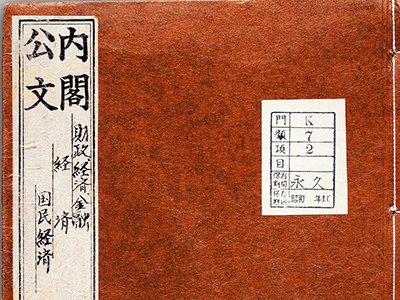 内閣
公文
財政経済金融
経済
国民経済
門 K
類 7
項 2
目
永久
昭和 年まで